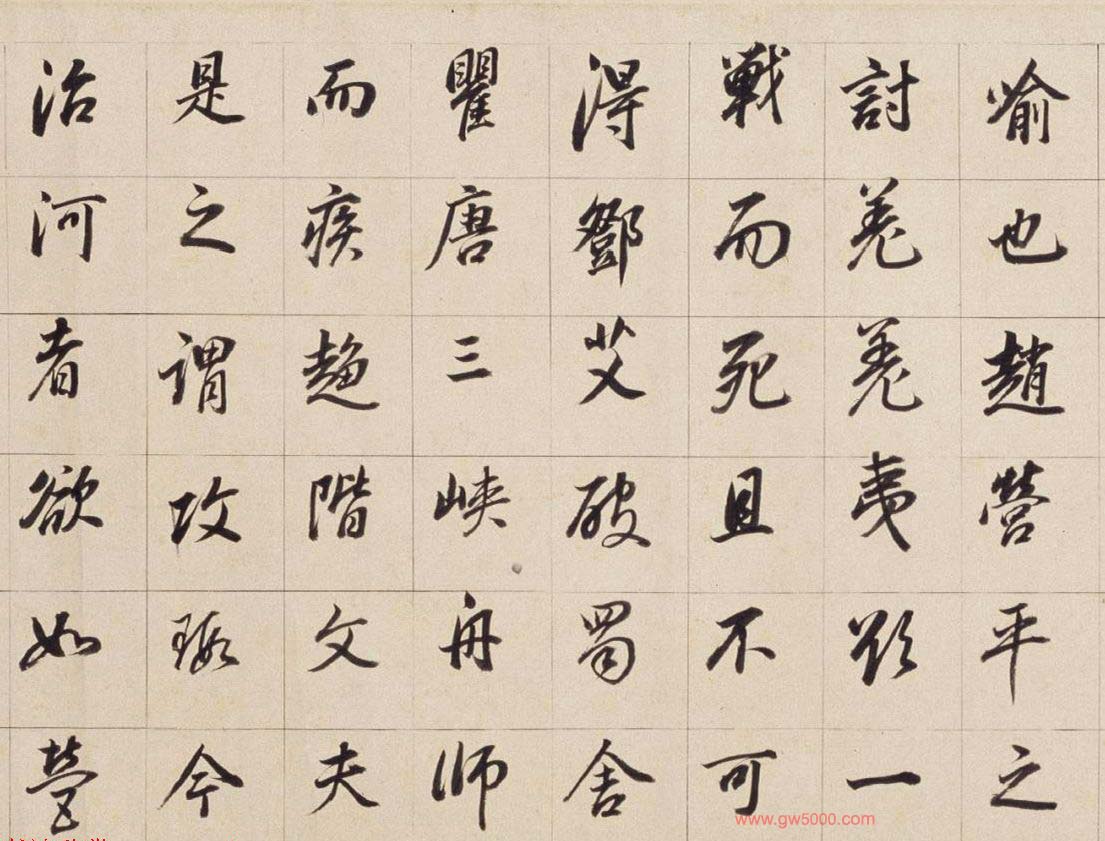 喻也趙營平之
討羌羌夷欲一
戰而死且不可
得鄧艾破蜀舍
瞿唐三峽舟師
而疾趨階文夫
是之謂攻瑕今
治河者欲如營
www.gw5000.com